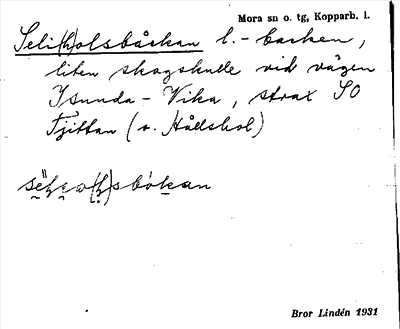 Mora sn o. tg, Kopparb. l.
Seli(h)olsbåckan l. - backen,
liten skogskulle vid vägen
Isunda - Vika, strax SO
Tjittan (v. Hållshol)
Bror Lindén 1931